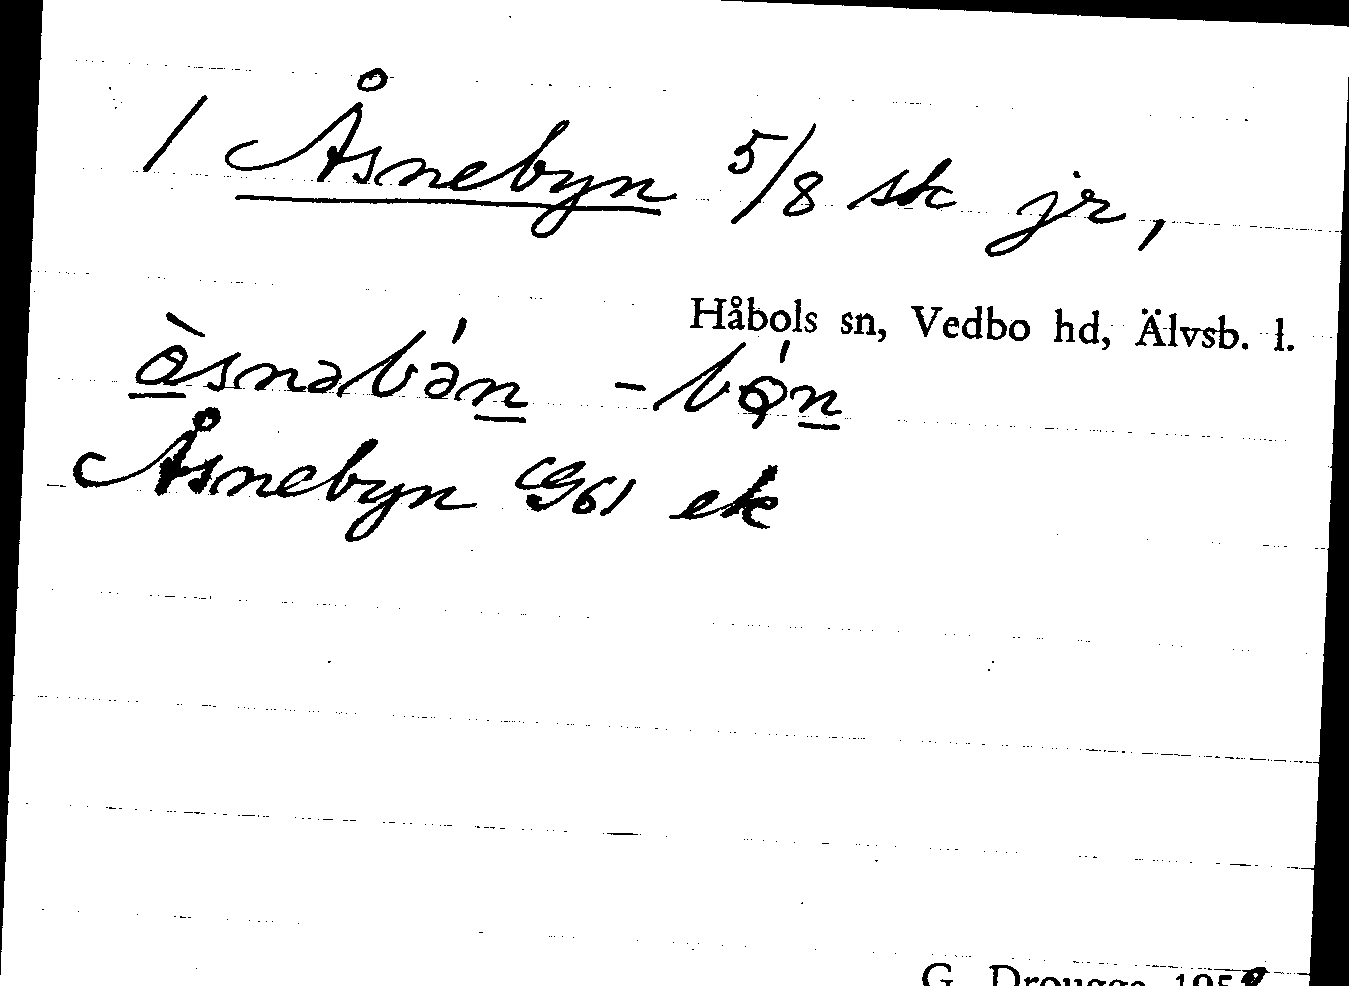 / Åsnebyn 5/8 sk jr,
Håbols sn, Vedbo hd, Älvsb. l.
ὰsnəbə́n -bǫ́n
Åsnebyn G61 ek
G. Drougge 1958